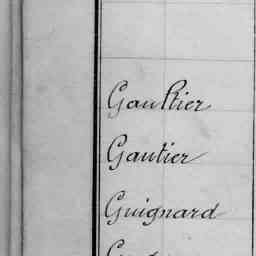 Gaultier
Gautier
Guignard